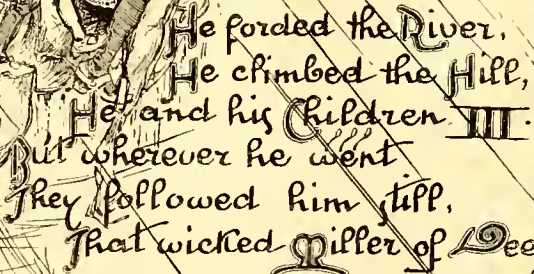 He forded the River,
He climbed the Hill,
He and his Children III.
But wherever he went
They followed him still,
That wicked Miller of Dee